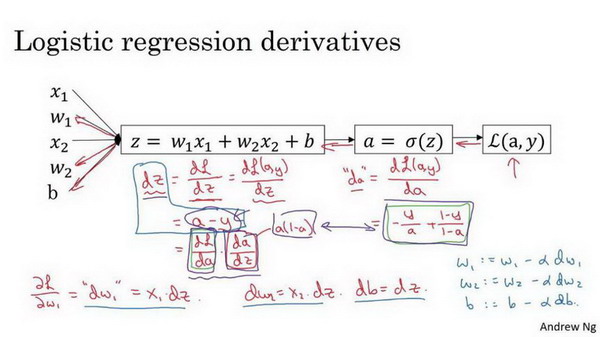 Logistic regression derivatives
x₁
w₁
x₂
w₂
b
z = w₁x₁ + w₂x₂ + b
a = σ(z)
ℒ(a, y)
dz = dℒ/dz = dℒ(a,y)/dz
"da" = dℒ(a,y)/da
= a - y
= -y/a + (1-y)/(1-a)
= dℒ/da · da/dz
a(1-a)
∂ℒ/∂w₁ = "dw₁" = x₁·dz.
dw₂ = x₂·dz.
db = dz.
w₁ := w₁ - αdw₁
w₂ := w₂ - αdw₂
b := b - αdb.
Andrew Ng